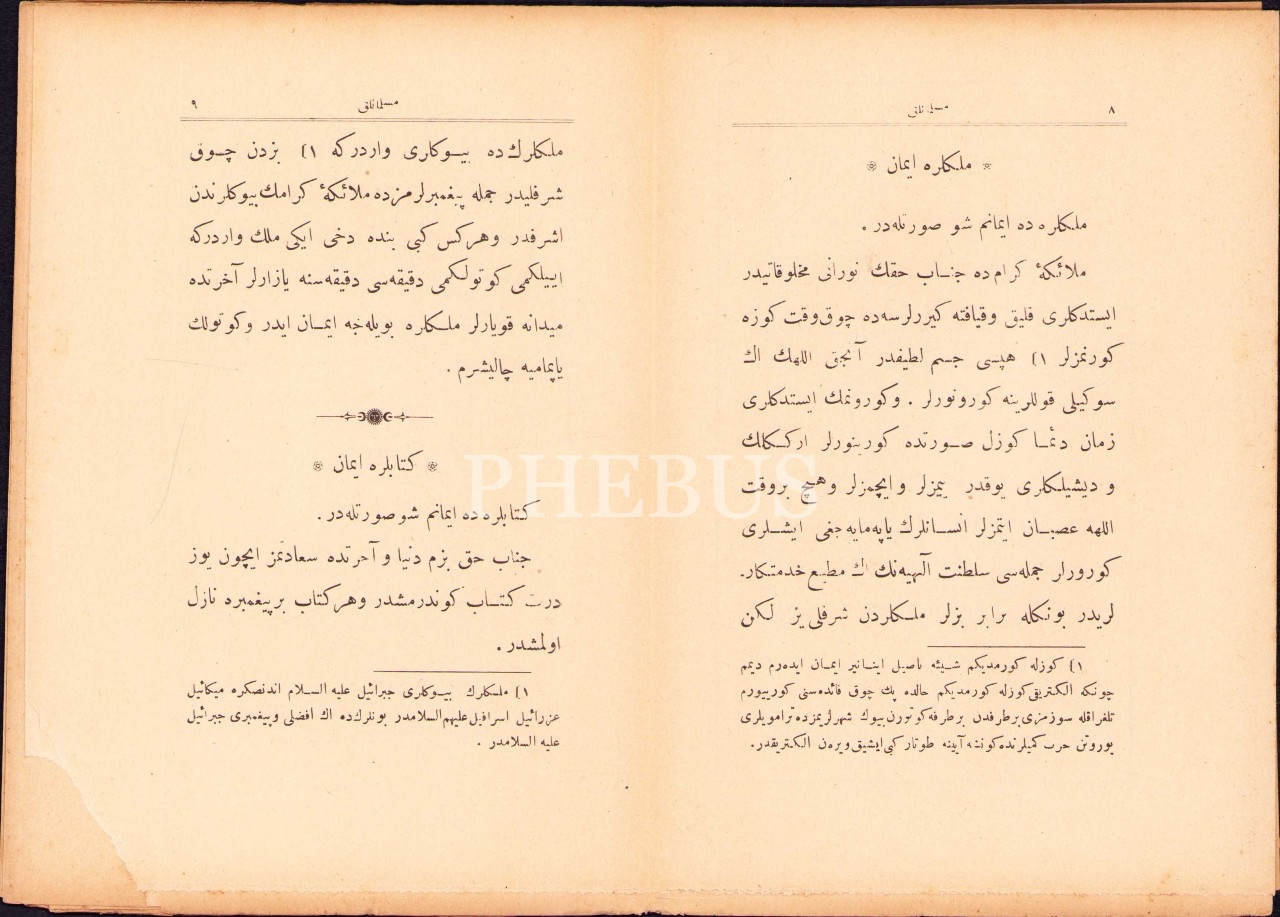 ٨
مسلمانلق
❊ ملكلره ايمان ❊
ملكلره ده ايمانم شو صورتله‌در .
ملائكۀ كرام ده جناب حقك نورانى مخلوقاتيدر
ايستدكلرى قليق وقيافته كيررلرسه‌ده چوق وقت كوزه
كورنمزلر ١) هپسى جسم لطيفدر آنجق اللهك اك
سوكيلى قوللرينه كورونورلر . وكورونمك ايستدكلرى
زمان دئما كوزل صورتده كورينورلر اركككلك
و ديشيلكلرى يوقدر ييمزلر وايچمزلر وهيچ بروقت
اللهه عصيان ايتمزلر انسانلرك ياپه‌مايه‌جغى ايشلرى
كورورلر جمله‌سى سلطنت آلهيه‌نك اك مطيع خدمتكار.
لريدر بونكله برابر بزلر ملكلردن شرفلى يز لكن
١) كوزله كورمديكم شيئه ناصيل اينانير ايمان ايده‌رم ديمم
چونكه الكتريقى كوزله كورمديكم حالده پك چوق فائده‌سنى كورييورم
تلغرافله سوزمزى برطرفدن برطرفه كوتورن بيوك شهرلريمزده ترامويلرى
يوروتن حرب كميلرنده كونشه آيينه طوتار كبى ايشيق ويره‌ن الكتريقدر.
مسلمانلق
٩
ملكلرك ده بيوكلرى واردركه ١) بزدن چوق
شرفليدر جمله پيغمبرلرمزده ملائكۀ كرامك بيوكلرندن
اشرفدر وهركس كبى بنده دخى ايكى ملك واردركه
اييلكمى كوتولكمى دقيقه‌سى دقيقه‌سنه يازارلر آخرتده
ميدانه قويارلر ملكلره بويله‌جه ايمان ايدر وكوتولك
ياپماميه چاليشرم .
❊ كتابلره ايمان ❊
كتابلره ده ايمانم شو صورتله‌در.
جناب حق بزم دنيا و آخرتده سعادتمز ايچون يوز
درت كتاب كوندرمشدر وهركتاب برپيغمبره نازل
اولمشدر .
١) ملكلرك بيوكلرى جبرائيل عليه السلام اندنصكره ميكائيل
عزرائيل اسرافيل عليهم السلامدر بونلرك ده اك افضلى وپيغمبرى جبرائيل
عليه السلامدر .
PHEBUS